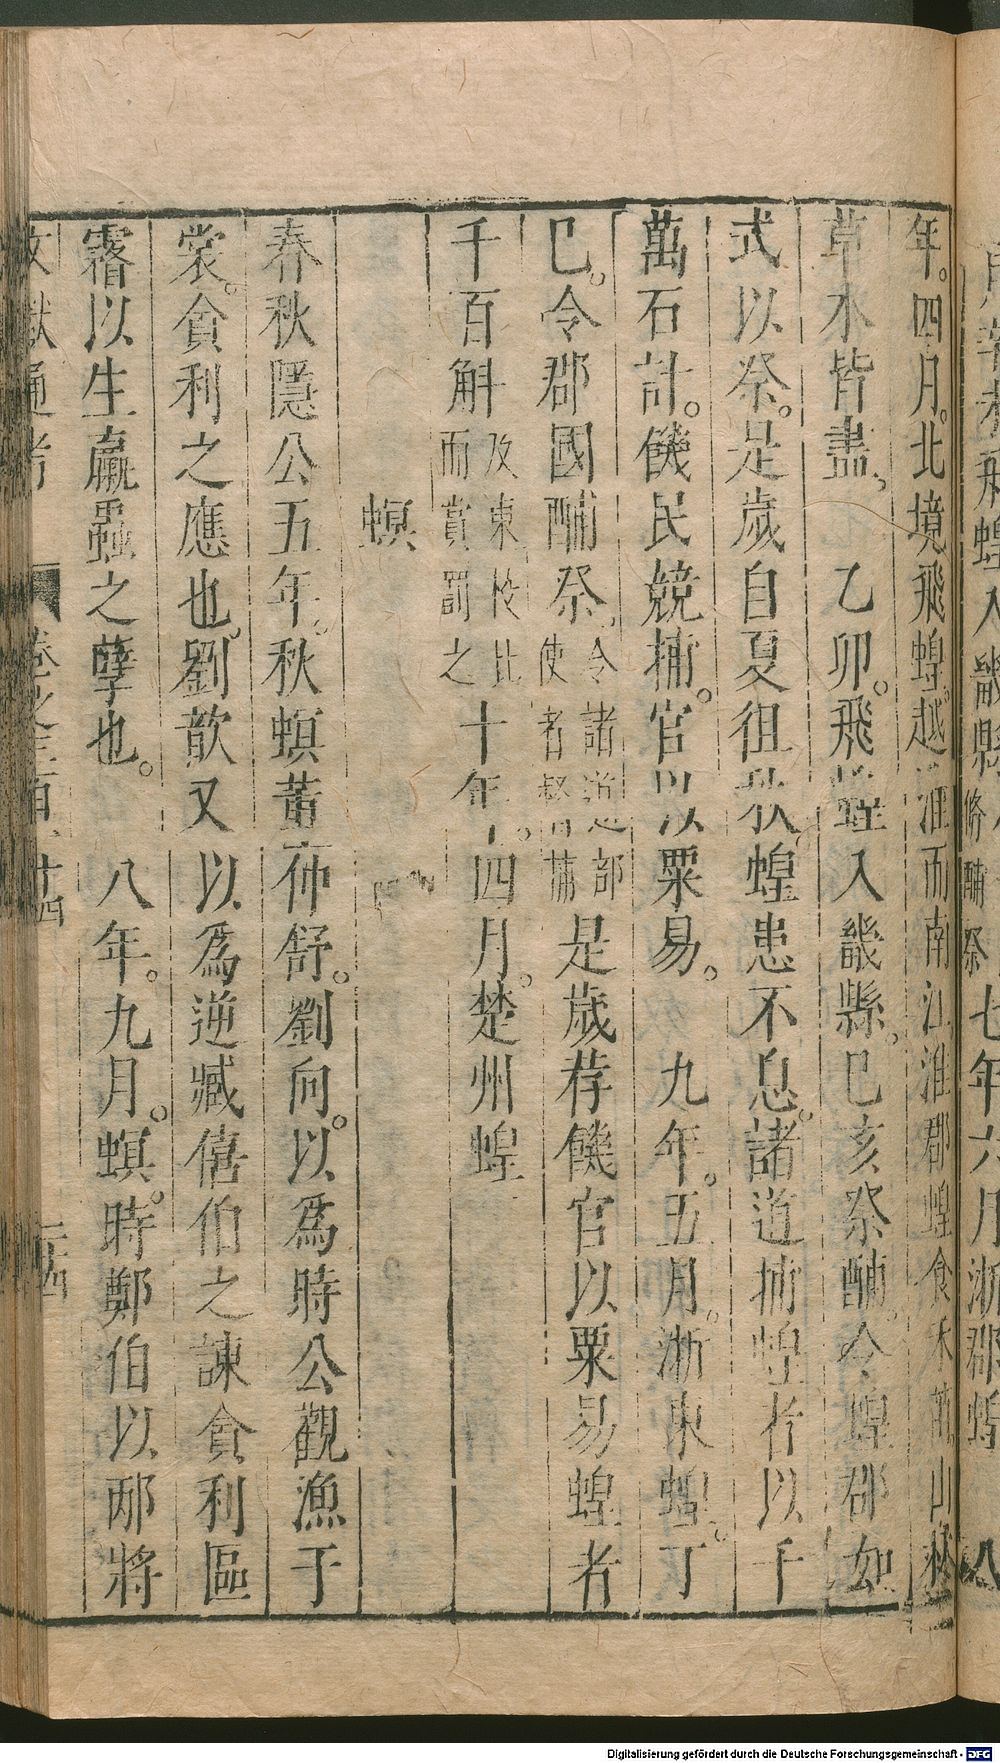 飛蝗入畿縣
脩酺祭七年六月浙郡蝗八
年。四月。北境飛蝗越淮而南江淮郡蝗食禾苗山林
草木皆盡、乙卯。飛蝗入畿縣。己亥祭酺。令蝗郡如
式以祭。是歲自夏徂秋蝗患不息。諸道捕蝗者以千
萬石計。饑民競捕。官以粟易。九年。五月。浙東蝗。丁
巳。令郡國酺祭。令諸道部使者督捕是歲荐饑官以粟易蝗者
千百斛而賞罰之十年。四月。楚州蝗
螟
春秋隱公五年。秋螟董仲舒。劉向。以爲時公觀漁于
棠。貪利之應也。劉歆又以爲逆臧僖伯之諫貪利區
霿以生臝蟲之孽也。八年。九月。螟。時鄭伯以邴將
文獻通考 卷之三百十四 二十四
Digitalisierung gefördert durch die Deutsche Forschungsgemeinschaft - DFG